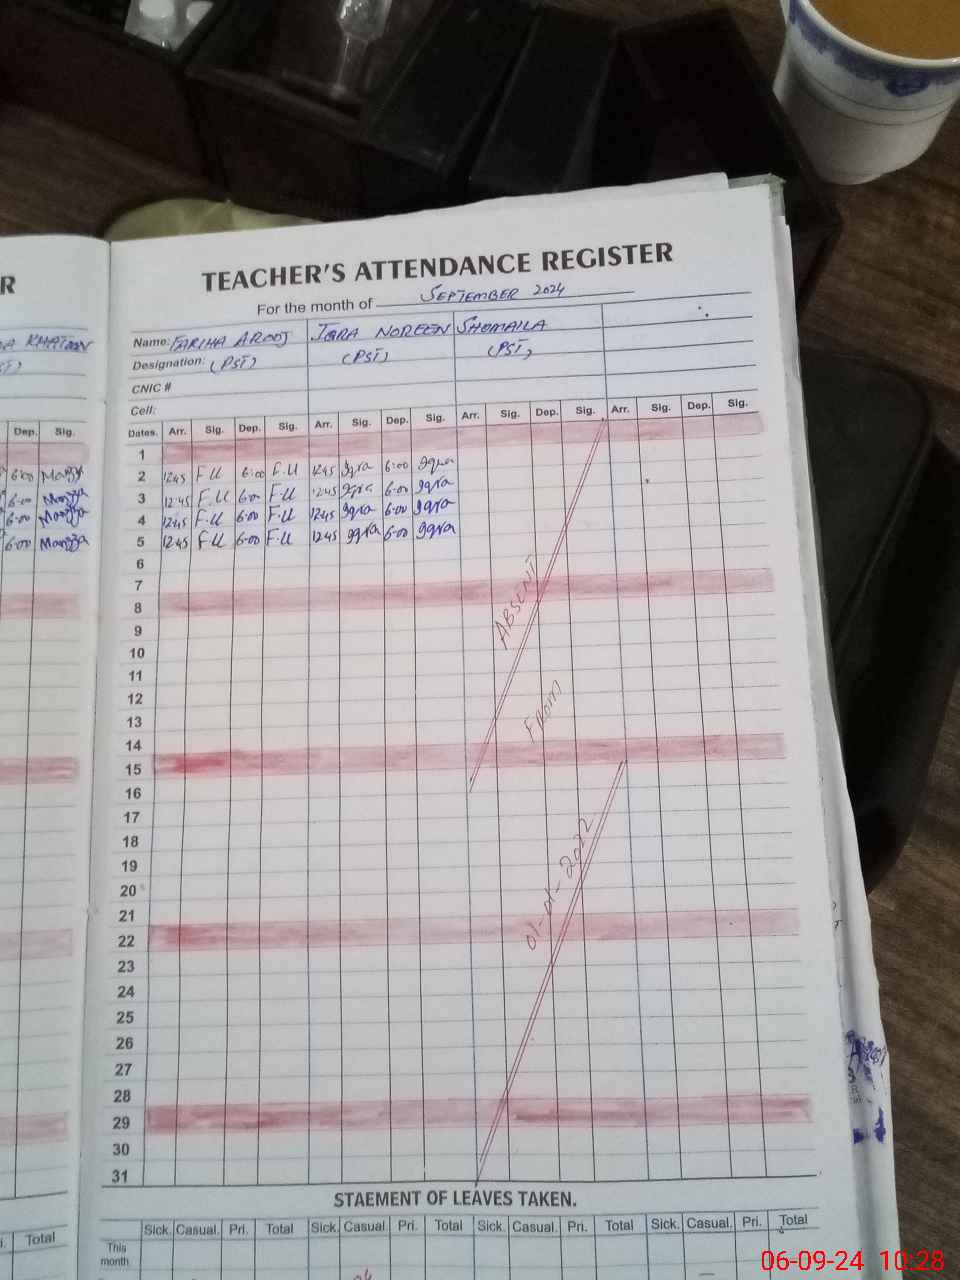 R
TEACHER'S ATTENDANCE REGISTER
For the month of SEPTEMBER 2024
KHATOON
Name: FARIHA AROOJ IQRA NOREEN SHOMAILA
Designation: (PST) (PST) (PST)
CNIC #
Cell:
Dep. Sig.
Dates. Arr. Sig. Dep. Sig. Arr. Sig. Dep. Sig. Arr. Sig. Dep. Sig. Arr. Sig. Dep. Sig.
1
6:00 2 12:45 F.U 6:00 F.U 12:45 Iqra 6:00 Iqra
6:00 3 12:45 F.U 6:00 F.U 12:45 Iqra 6:00 Iqra
6:00 4 12:45 F.U 6:00 F.U 12:45 Iqra 6:00 Iqra
6:00 5 12:45 F.U 6:00 F.U 12:45 Iqra 6:00 Iqra
6
7
8
9
10
11
12
13
14
15
16
17
18
19
20
21
22
23
24
25
26
27
28
29
30
31
ABSENT
FROM
01-01-2022
STAEMENT OF LEAVES TAKEN.
Total
Sick. Casual. Pri. Total Sick. Casual. Pri. Total Sick. Casual. Pri. Total Sick. Casual. Pri. Total
This
month
06-09-24 10:28